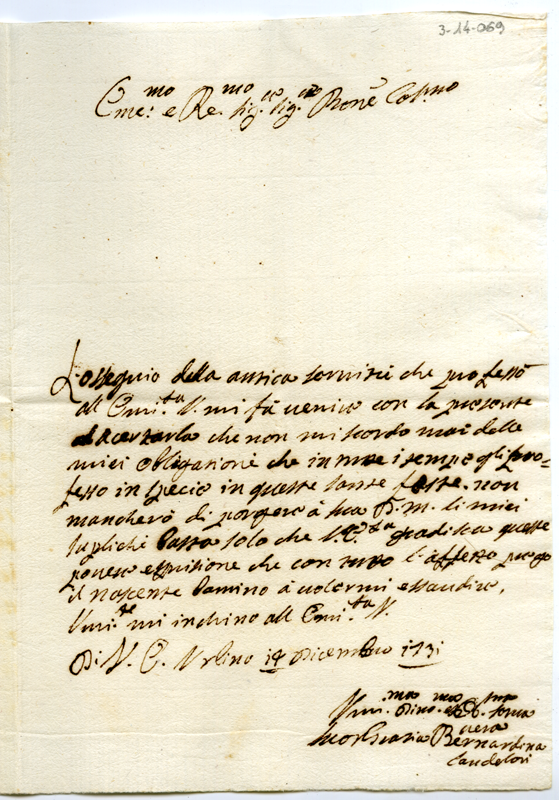 3-14-069
Eme:mo e Re.mo Sig.re Sig.re Prone Col.mo
L'ossequio della antica servitù che professo
all Emi.ta V. mi fà venire con la presente
ad acertarla che non mi scordo mai delle
miei obligazione che in tutte i tempe gli pro=
fesso in specie in queste sante feste. non
mancherò di porgere à sua D. M. li miei
supliche basta solo che l'E.ta gradisca queste
povere espresione che con tutto l'affetto prego
il nascente Bamino à volermi essaudire,
Umi.te mi inchino all Emi.ta V.
Di V. E. Urbino 14 Dicembre 1731
Um.ma Dma. et Ob. serva
vera
Suor Maria Bernardina
Candelori